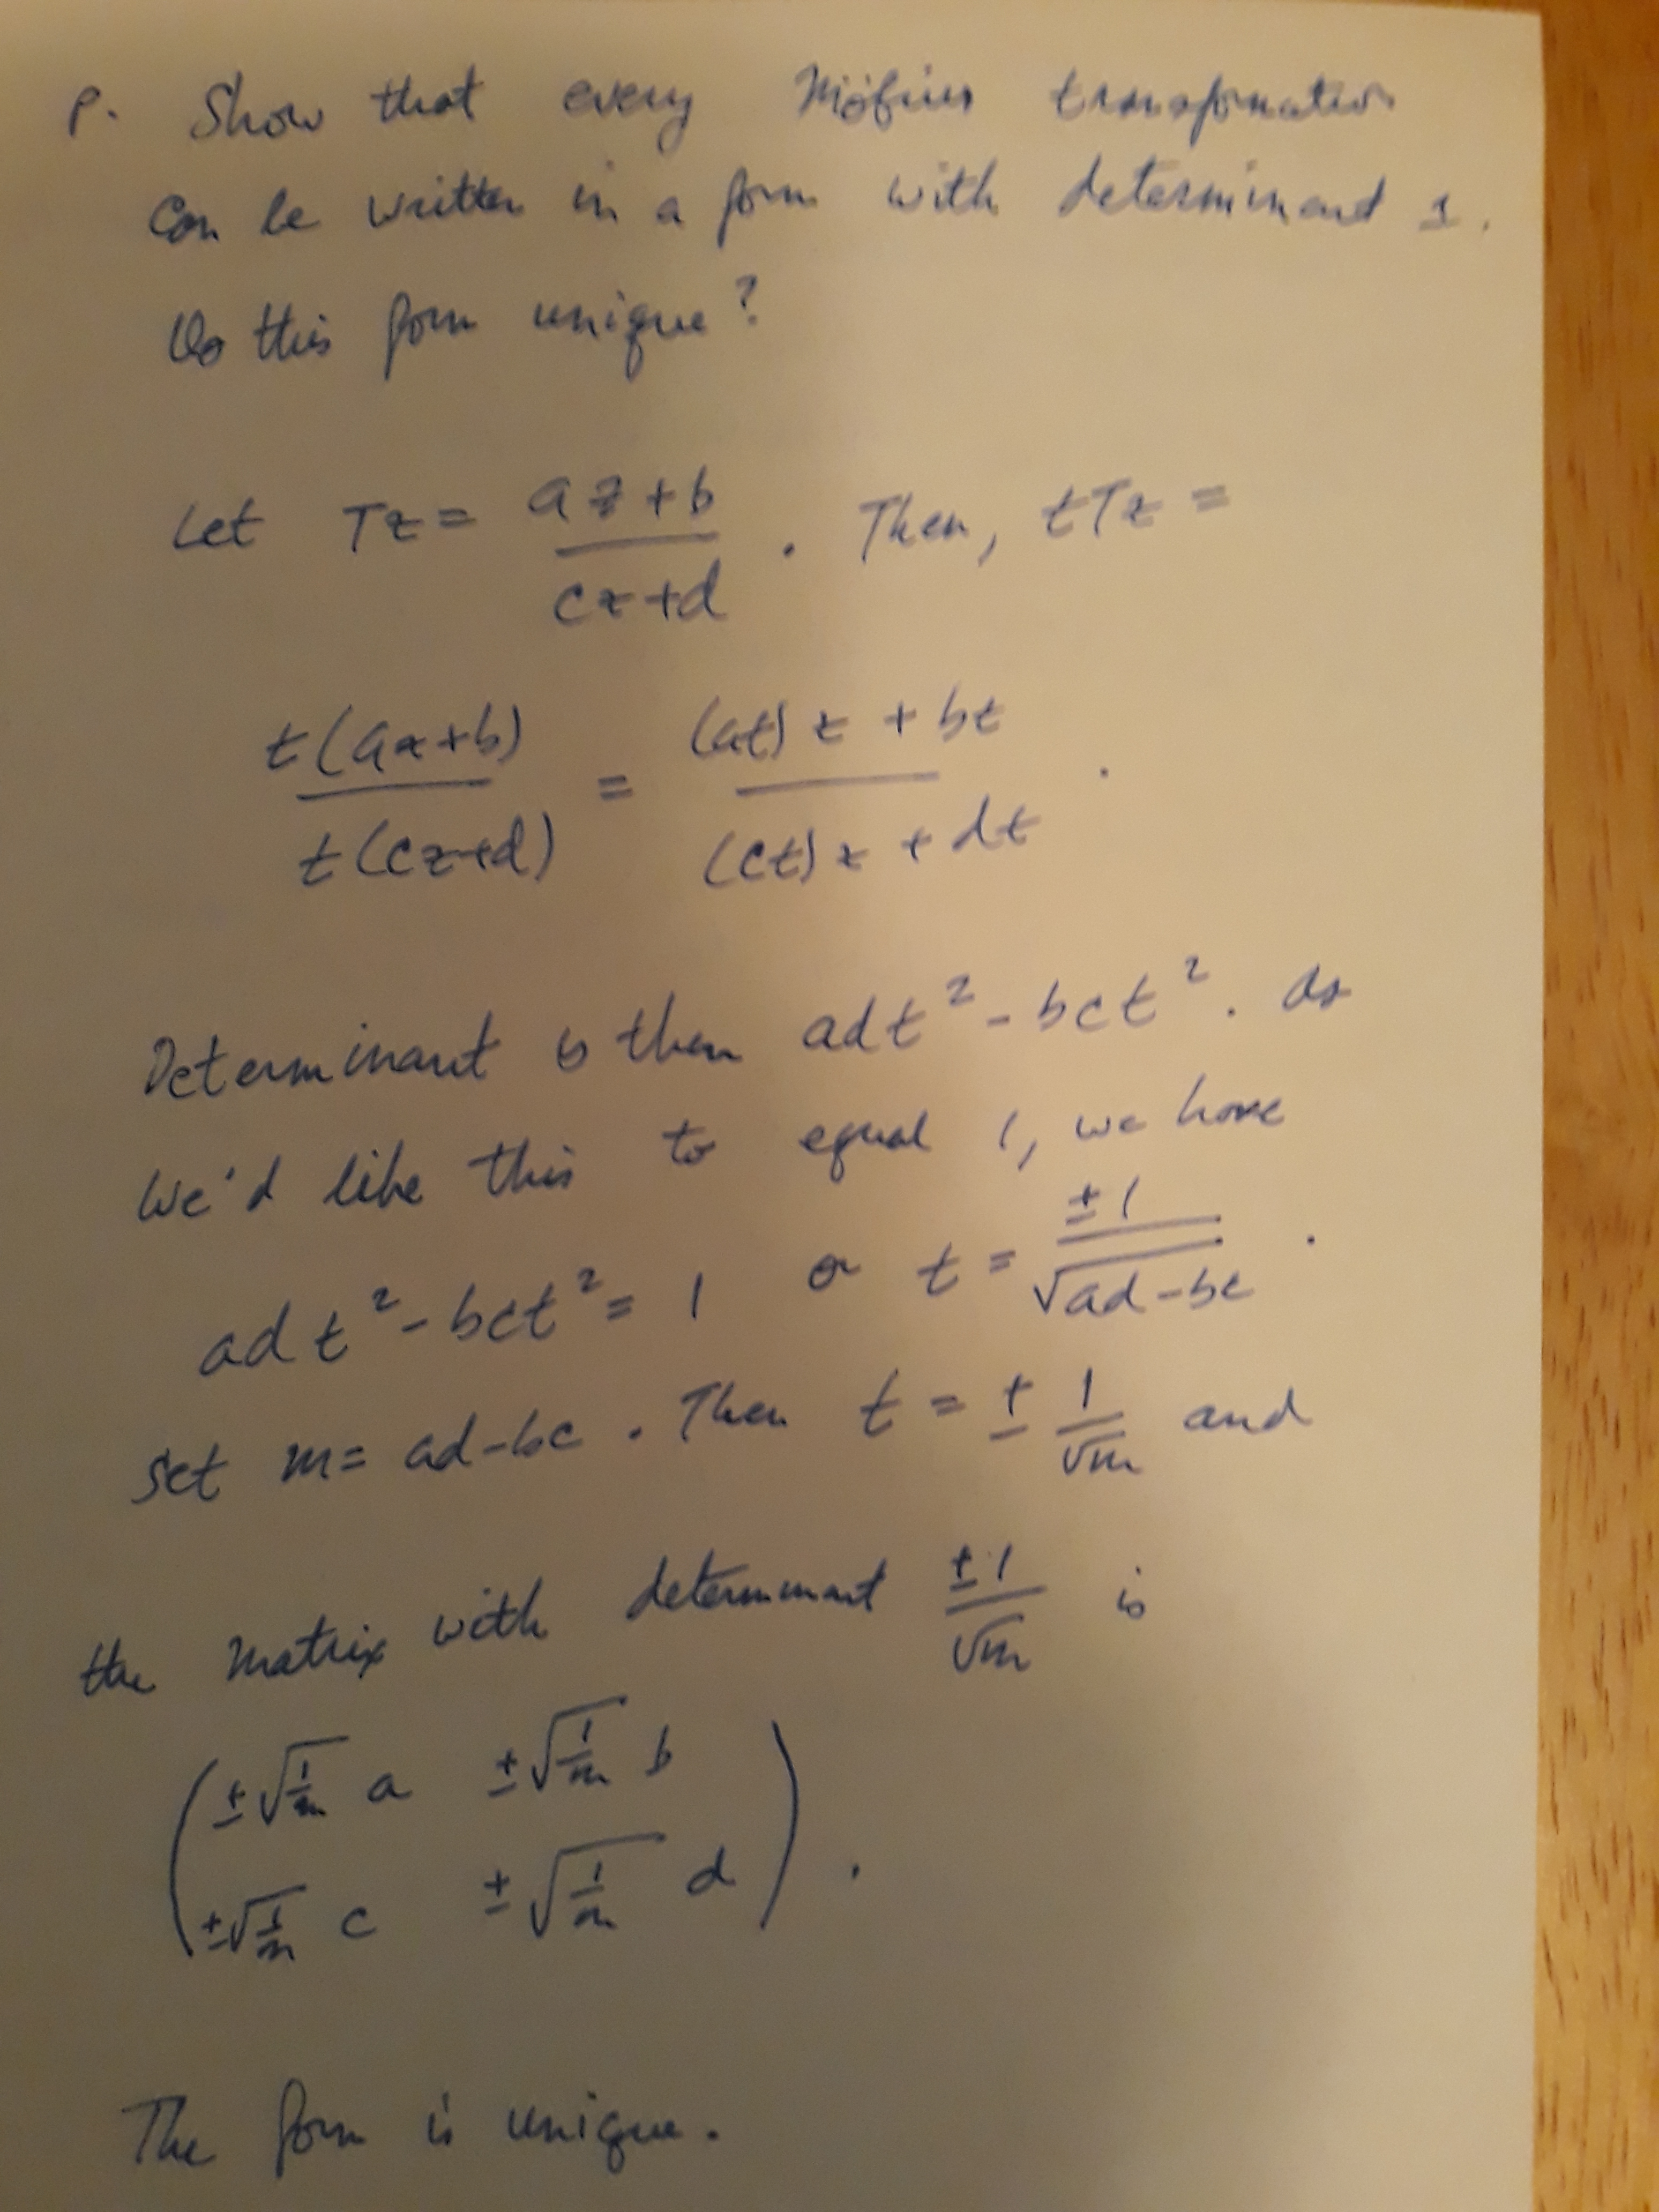 P. Show that every Möbius transformation
can be written in a form with determinant 1.
Is this form unique?
Let Tz = (az+b)/(cz+d) . Then, tTz =
t(az+b)/t(cz+d) = ((at)z + bt)/((ct)z + dt) .
Determinant is then adt² - bct². As
we'd like this to equal 1, we have
adt² - bct² = 1 or t = ±1/√(ad-bc) .
Set m = ad-bc . Then t = ± 1/√m and
the matrix with determinant ±1/√m is
( ±√(1/m) a ±√(1/m) b
±√(1/m) c ±√(1/m) d ) .
The form is unique.